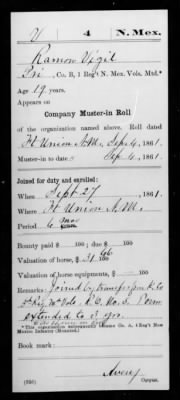 V | 4 | N. Mex.
Ramon Vigil
Pvt, Co. B, 1 Reg't N. Mex. Vols. Mtd.*
Age 19 years.
Appears on
Company Muster-in Roll
of the organization named above. Roll dated
Ft Union N.M., Sep 4, 1861.
Muster-in to date Sep 4, 1861.
Joined for duty and enrolled:
When Sept 27, 1861.
Where Ft Union N.M.
Period 6 mos
Bounty paid $ 100; due $ 100
Valuation of horse, $ 100
Valuation of horse equipments, $ 100
Remarks: Joined by transfer
extended to 3 yrs.
*This organization subsequently became Co. A, 4 Reg't New
Mexico Infantry (Mounted.)
Book mark:
Avery
(356) Copyist.